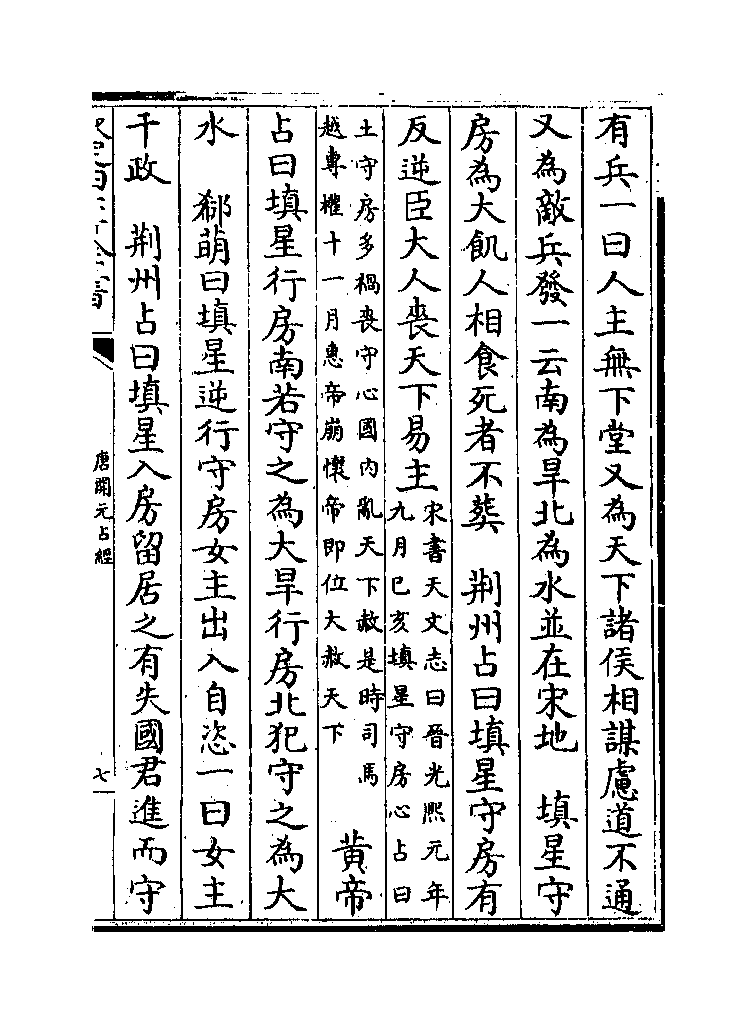 有兵一曰人主無下堂又為天下諸侯相謀慮道不通
又為敵兵發一云南為旱北為水並在宋地　填星守
房為大飢人相食死者不葬　荆州占曰填星守房有
反逆臣大人喪天下易主
宋書天文志曰晉光熙元年
九月己亥填星守房心占曰
土守房多禍喪守心國内亂天下赦是時司馬
越專權十一月惠帝崩懷帝即位大赦天下
黄帝
占曰填星行房南若守之為大旱行房北犯守之為大
水　郗萌曰填星逆行守房女主出入自恣一曰女主
干政　荆州占曰填星入房留居之有失國君進而守
唐開元占經
七